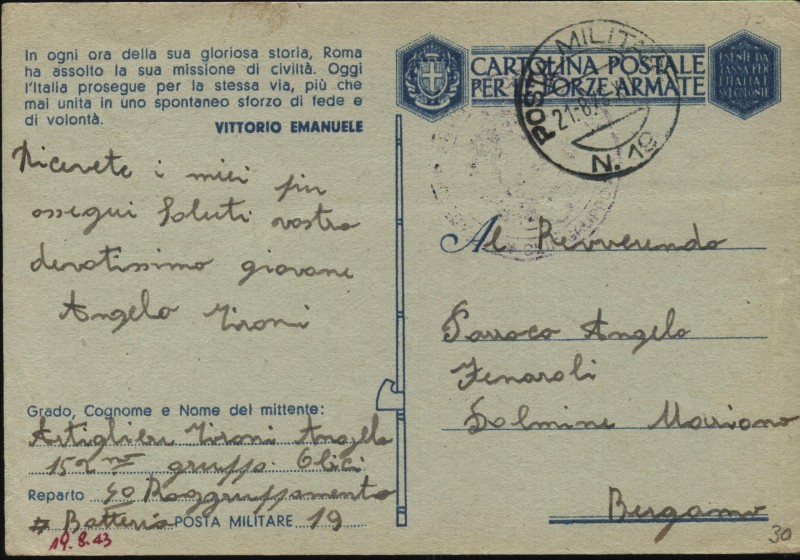 In ogni ora della sua gloriosa storia, Roma
ha assolto la sua missione di civiltà. Oggi
l'Italia prosegue per la stessa via, più che
mai unita in uno spontaneo sforzo di fede e
di volontà.
VITTORIO EMANUELE
Ricevete i miei piu
ossequi Saluti vostro
devotissimo giovane
Angelo Tironi
Grado, Cognome e Nome del mittente:
Artiglieri Tironi Angelo
152 gruppo Obici
Reparto 40 Raggruppamento
Batteria POSTA MILITARE 19
19.8.43
CARTOLINA POSTALE
PER LE FORZE ARMATE
ESENTE DA
TASSA PER
L'ITALIA E
COLONIE
POSTA MILITARE
21.8.
N. 19
Al Revverendo
Parroco Angelo
Fenaroli
Dolmine Mariano
Bergamo
30